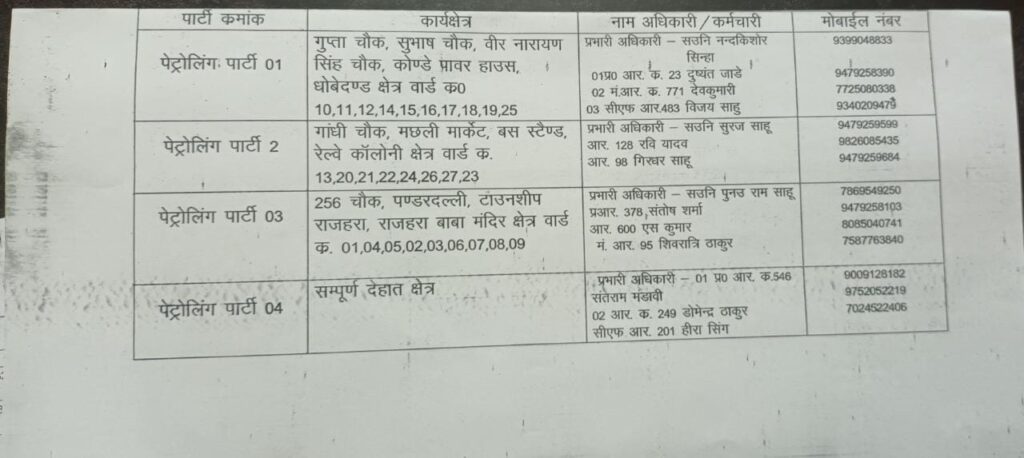 पार्टी कमांक कार्यक्षेत्र नाम अधिकारी / कर्मचारी मोबाईल नंबर
पेट्रोलिंग पार्टी 01
गुप्ता चौक, सुभाष चौक, वीर नारायण
सिंह चौक, कोण्डे पावर हाउस,
धोबेदण्ड क्षेत्र वार्ड क0
10,11,12,14,15,16,17,18,19,25
प्रभारी अधिकारी – सउनि नन्दकिशोर
सिन्हा
01प्र0 आर. क. 23 दुष्यंत जाडे
02 मं.आर. क. 771 देवकुमारी
03 सीएफ आर.483 विजय साहु
9399048833
9479258390
7725080338
9340209479
पेट्रोलिंग पार्टी 2
गांधी चौक, मछली मार्केट, बस स्टैण्ड,
रेल्वे कॉलोनी क्षेत्र वार्ड क.
13,20,21,22,24,26,27,23
प्रभारी अधिकारी – सउनि सुरज साहू
आर. 128 रवि यादव
आर. 98 गिरधर साहू
9479259599
9826085435
9479259684
पेट्रोलिंग पार्टी 03
256 चौक, पण्डरदल्ली, टाउनशीप
राजहरा, राजहरा बाबा मंदिर क्षेत्र वार्ड
क. 01,04,05,02,03,06,07,08,09
प्रभारी अधिकारी – सउनि पुनउ राम साहू
प्रआर. 378 संतोष शर्मा
आर. 600 एस कुमार
मं. आर. 95 शिवरात्रि ठाकुर
7869549250
9479258103
8085040741
7587763840
पेट्रोलिंग पार्टी 04
सम्पूर्ण देहात क्षेत्र
प्रभारी अधिकारी – 01 प्र0 आर. क.546
संतराम मंडावी
02 आर. क. 249 डोमेन्द्र ठाकुर
सीएफ आर. 201 हीरा सिंग
9009128182
9752052219
7024522406